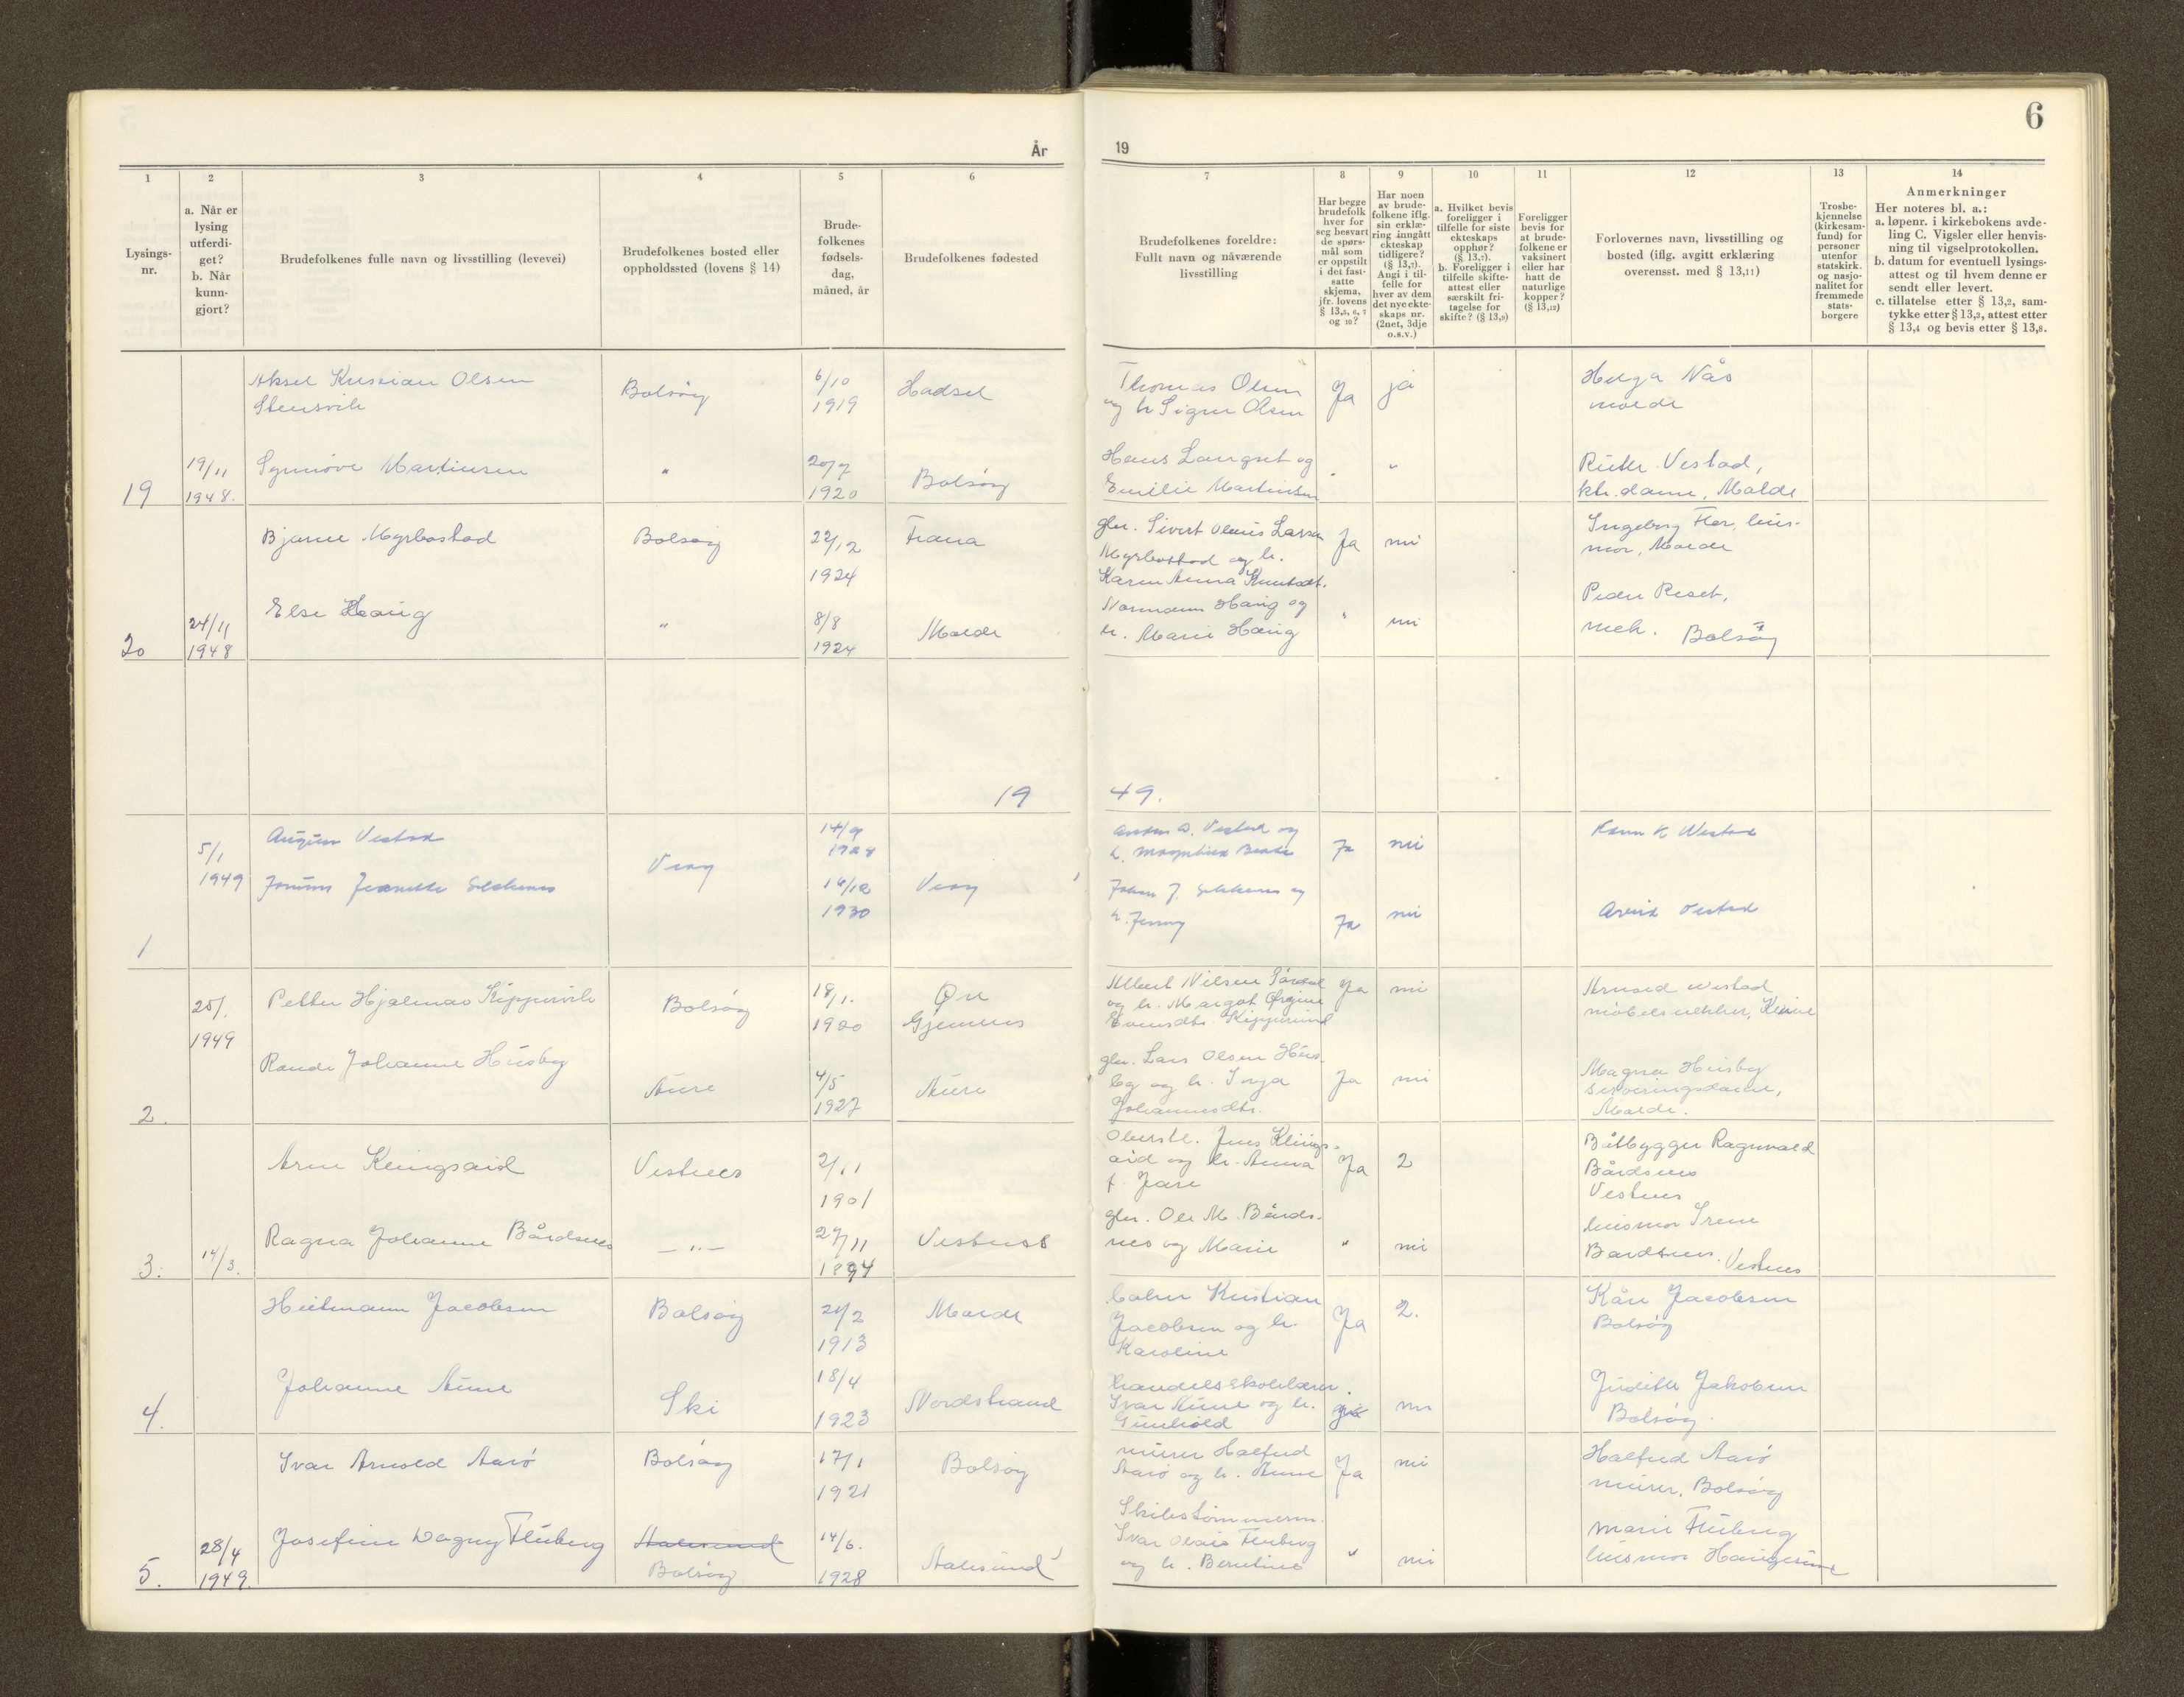 6
År
19
1
2
3
4
5
6
7
8
9
10
11
12
13
14
Lysings-
nr.
a. Når er
lysing
utferdi-
get?
b. Når
kunn-
gjort?
Brudefolkenes fulle navn og livsstilling (levevei)
Brudefolkenes bosted eller
oppholdssted (lovens § 14)
Brude-
folkenes
fødsels-
dag,
måned, år
Brudefolkenes fødested
Brudefolkenes foreldre:
Fullt navn og nåværende
livsstilling
Har begge
brudefolk
hver for
seg besvart
de spørs-
mål som
er oppstilt
i det fast-
satte
skjema,
jfr. lovens
§ 13,5, 6, 7
og 10?
Har noen
av brude-
folkene iflg.
sin erklæ-
ring inngått
ekteskap
tidligere?
(§ 13,7).
Angi i til-
felle for
hver av dem
det nye ekte-
skaps nr.
(2net, 3dje
o.s.v.)
a. Hvilket bevis
foreligger i
tilfelle for siste
ekteskaps
opphør?
(§ 13,7).
b. Foreligger i
tilfelle skifte-
attest eller
særskilt fri-
tagelse for
skifte? (§ 13,9)
Foreligger
bevis for
at brude-
folkene er
vaksinert
eller har
hatt de
naturlige
kopper?
(§ 13,12)
Forlovernes navn, livsstilling og
bosted (iflg. avgitt erklæring
overensst. med § 13,11)
Trosbe-
kjennelse
(kirkesam-
fund) for
personer
utenfor
statskirk.
og nasjo-
nalitet for
fremmede
stats-
borgere
Anmerkninger
Her noteres bl. a.:
a. løpenr. i kirkebokens avde-
ling C. Vigsler eller henvis-
ning til vigselprotokollen.
b. datum for eventuell lysings-
attest og til hvem denne er
sendt eller levert.
c. tillatelse etter § 13,2, sam-
tykke etter § 13,3, attest etter
§ 13,4 og bevis etter § 13,8.
Aksel Kristian Olsen
Stensvik
Bolsøy
6/10
1919
Hadsel
Thomas Olsen
og h Signe Olsen
Ja
ja
Helga Nås
molde
19
19/11
1948.
Synnøve Martinsen
"
20/7
1920
Bolsøy
Hans Langset og
Emilie Martinsen
"
"
Ruth Vestad,
ktr.dame, Molde
Bjarne Myrbostad
Bolsøy
22/12
1924
Fræna
gbr. Sivert Olaus Larsen
Myrbostad og h.
Karen Anna Knutsdt.
Ja
nei
Ingeborg Flor, hus-
mor, Molde
20
24/11
1948
Else Haug
"
8/8
1924
Molde
Normann Haug og
h. Marie Haug
"
nei
Peder Reset,
mek. Bolsøy
19
49.
5/1
1949
August Vestad
Veøy
14/9
1928
Anton A. Vestad og
h. Magnhild Beate
Ja
nei
Karen K Westad
1
Jorunn Jeanette
16/12
1930
Veøy
Johan J.
h. Jenny
Ja
nei
Arvid Vestad
25/1
1949
Petter Hjalmar Kippervik
Bolsøy
18/1.
1920
Øre
Gjemnes
Albert Nilsen
og h. Margot Ørgine
Ja
nei
Arnold Vestad
møbelsnekker, Kleive
2.
Randi Johanne Husby
Aure
4/5
1927
Aure
gbr. Lars Olsen Hus-
by og h. Inga
Johannesdtr.
Ja
nei
Magna Husby
serveringsdame,
Molde.
Arne Klingsaid
Vestnes
2/11
1901
Oberstl. Jens Klings-
aid og h. Anna
f.
Ja
2
Båtbygger Ragnvald
Bårdsnes
Vestnes
3.
14/3.
Ragna Johanne Bårdsnes
— " —
27/11
1894
Vestnes
gbr. Ole M. Bårds-
nes og Marie
"
nei
husmor Irene
Bårdsnes. Vestnes
Heitmann Jacobsen
Bolsøy
21/2
1913
Molde
Kristian
Jacobsen og h.
Karoline
Ja
2.
Kåre Jacobsen
Bolsøy
4.
Johanne Aune
Ski
18/4
1923
Nordstrand
handelsskolelærer
Ivar Aune og h.
Gunhild
nei
Judith Jakobsen
Bolsøy.
Ivar Arnold Aarø
Bolsøy
17/1
1921
Bolsøy
murer Halfred
Aarø og h. Anne
Ja
nei
Halfred Aarø
murer, Bolsøy
5.
28/4
1949.
Josefine Dagny Fluberg
Aalesund
Bolsøy
14/6.
1928
Aalesund
Skibstømmerm.
Ivar Olai Fluberg
og h. Berntine
"
nei
Marie Fluberg
husmor